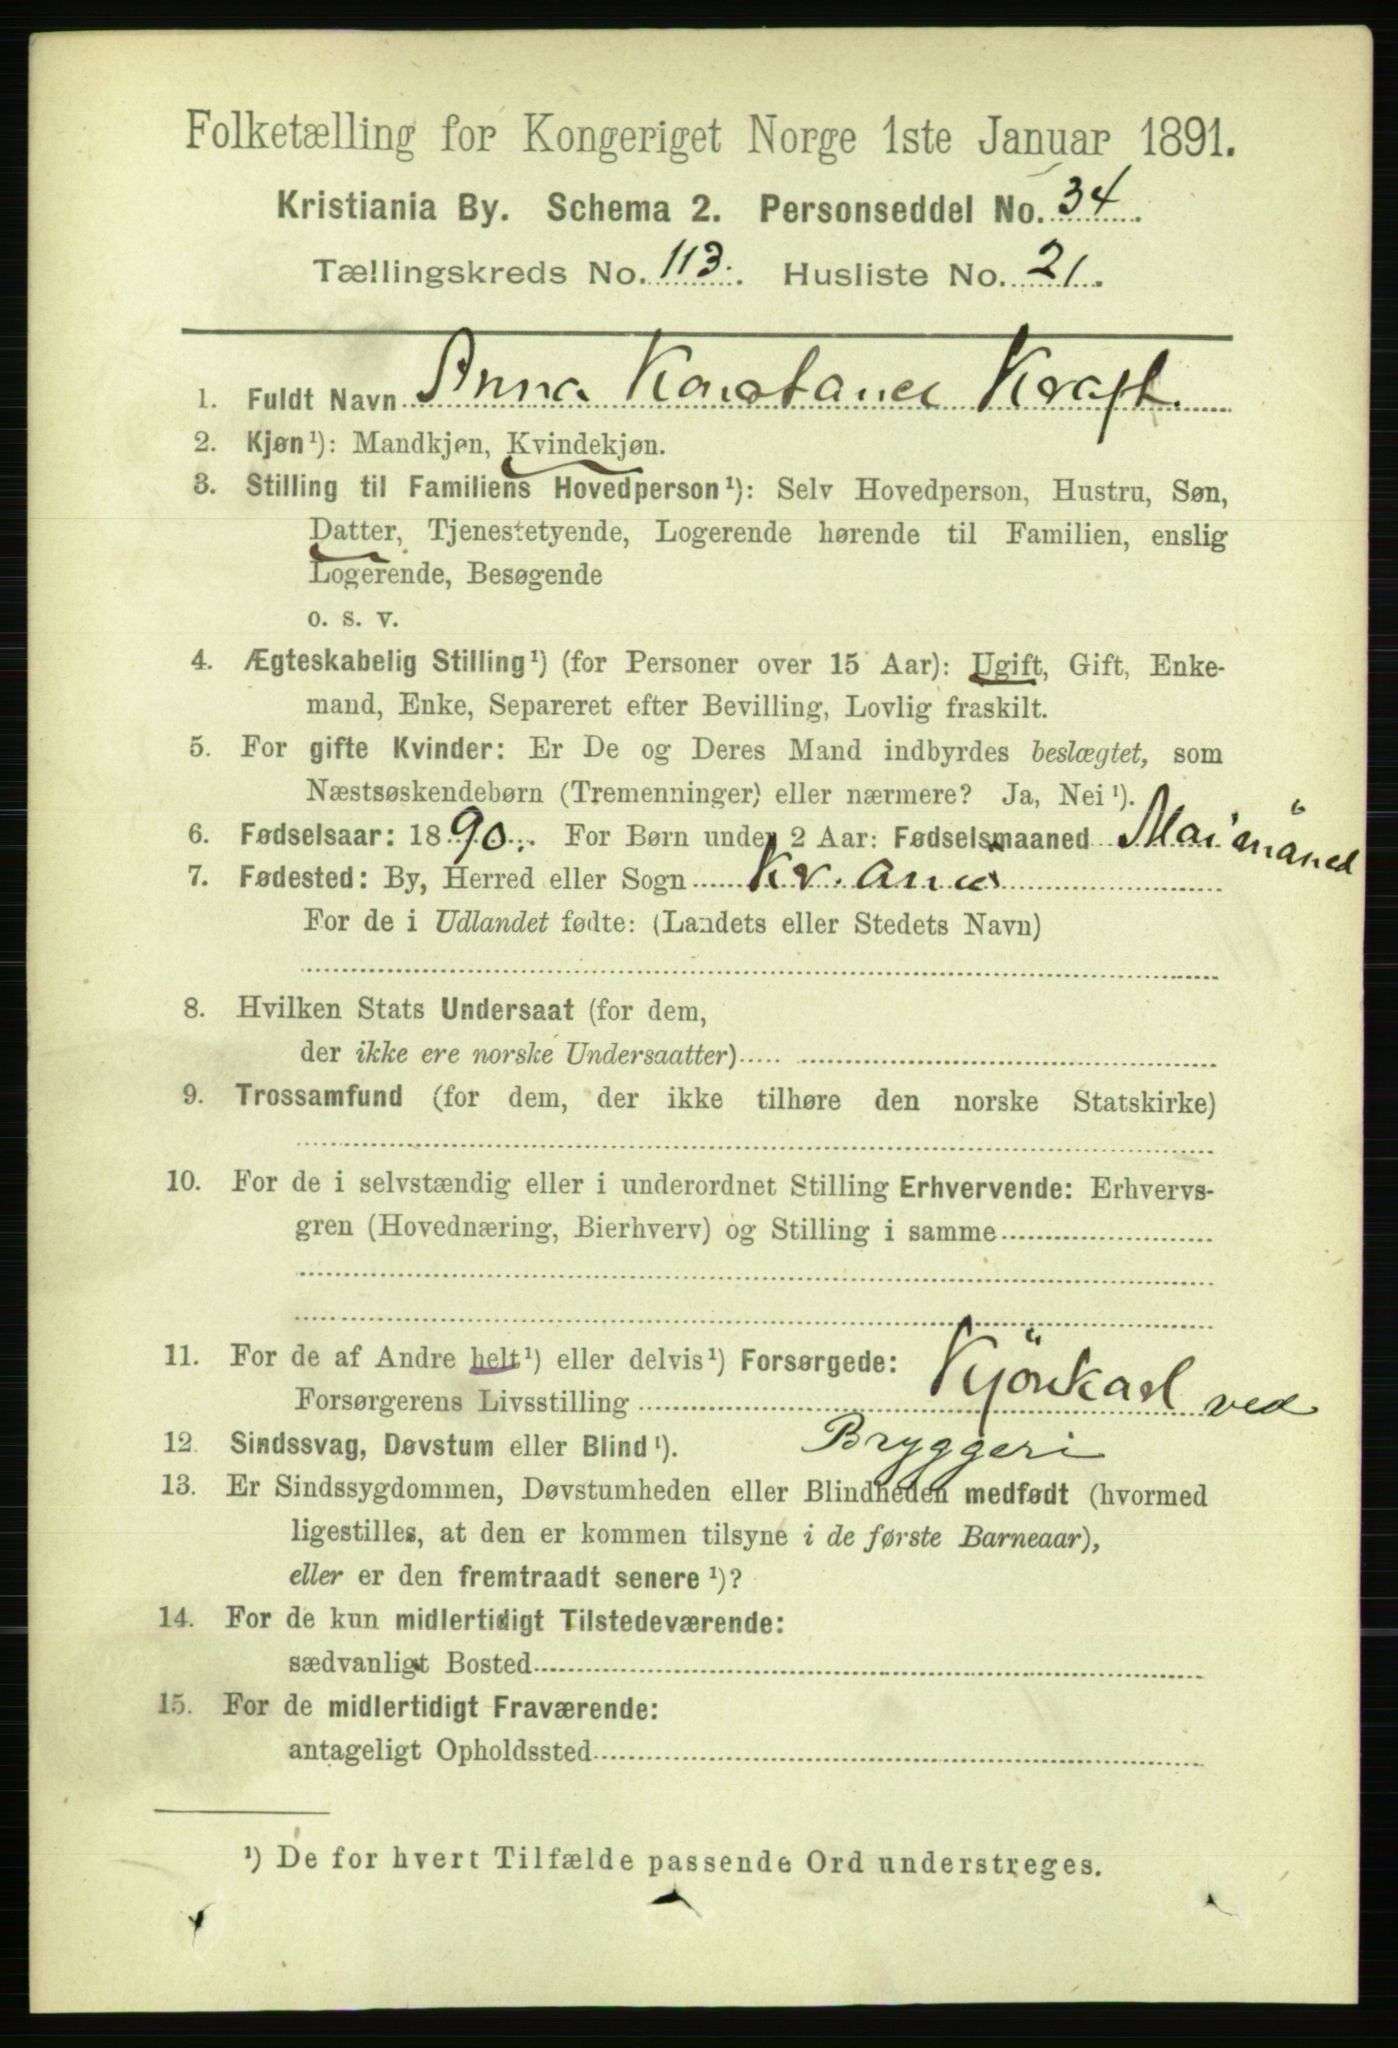 Folketælling for Kongeriget Norge 1ste Januar 1891.
Kristiania By. Schema 2. Personseddel No. 34.
Tællingskreds No. 113. Husliste No. 21.
1. Fuldt Navn Anna Konstance Kraft.
2. Kjøn¹): Mandkjøn, Kvindekjøn.
3. Stilling til Familiens Hovedperson¹): Selv Hovedperson, Hustru, Søn,
Datter, Tjenestetyende, Logerende hørende til Familien, enslig
Logerende, Besøgende
o. s. v.
4. Ægteskabelig Stilling¹) (for Personer over 15 Aar): Ugift, Gift, Enke-
mand, Enke, Separeret efter Bevilling, Lovlig fraskilt.
5. For gifte Kvinder: Er De og Deres Mand indbyrdes beslægtet, som
Næstsøskendebørn (Tremenninger) eller nærmere? Ja, Nei¹).
6. Fødselsaar: 1890. For Børn under 2 Aar: Fødselsmaaned Mai månед
7. Fødested: By, Herred eller Sogn Kr. ania
For de i Udlandet fødte: (Landets eller Stedets Navn)
8. Hvilken Stats Undersaat (for dem,
der ikke ere norske Undersaatter)
9. Trossamfund (for dem, der ikke tilhøre den norske Statskirke)
10. For de i selvstændig eller i underordnet Stilling Erhvervende: Erhvervs-
gren (Hovednæring, Bierhverv) og Stilling i samme
11. For de af Andre helt¹) eller delvis¹) Forsørgede:
Forsørgerens Livsstilling Kjörekarl ved
12. Sindssvag, Døvstum eller Blind¹). Bryggeri
13. Er Sindssygdommen, Døvstumheden eller Blindheden medfødt (hvormed
ligestilles, at den er kommen tilsyne i de første Barneaar),
eller er den fremtraadt senere¹)?
14. For de kun midlertidigt Tilstedeværende:
sædvanligt Bosted
15. For de midlertidigt Fraværende:
antageligt Opholdssted
¹) De for hvert Tilfælde passende Ord understreges.